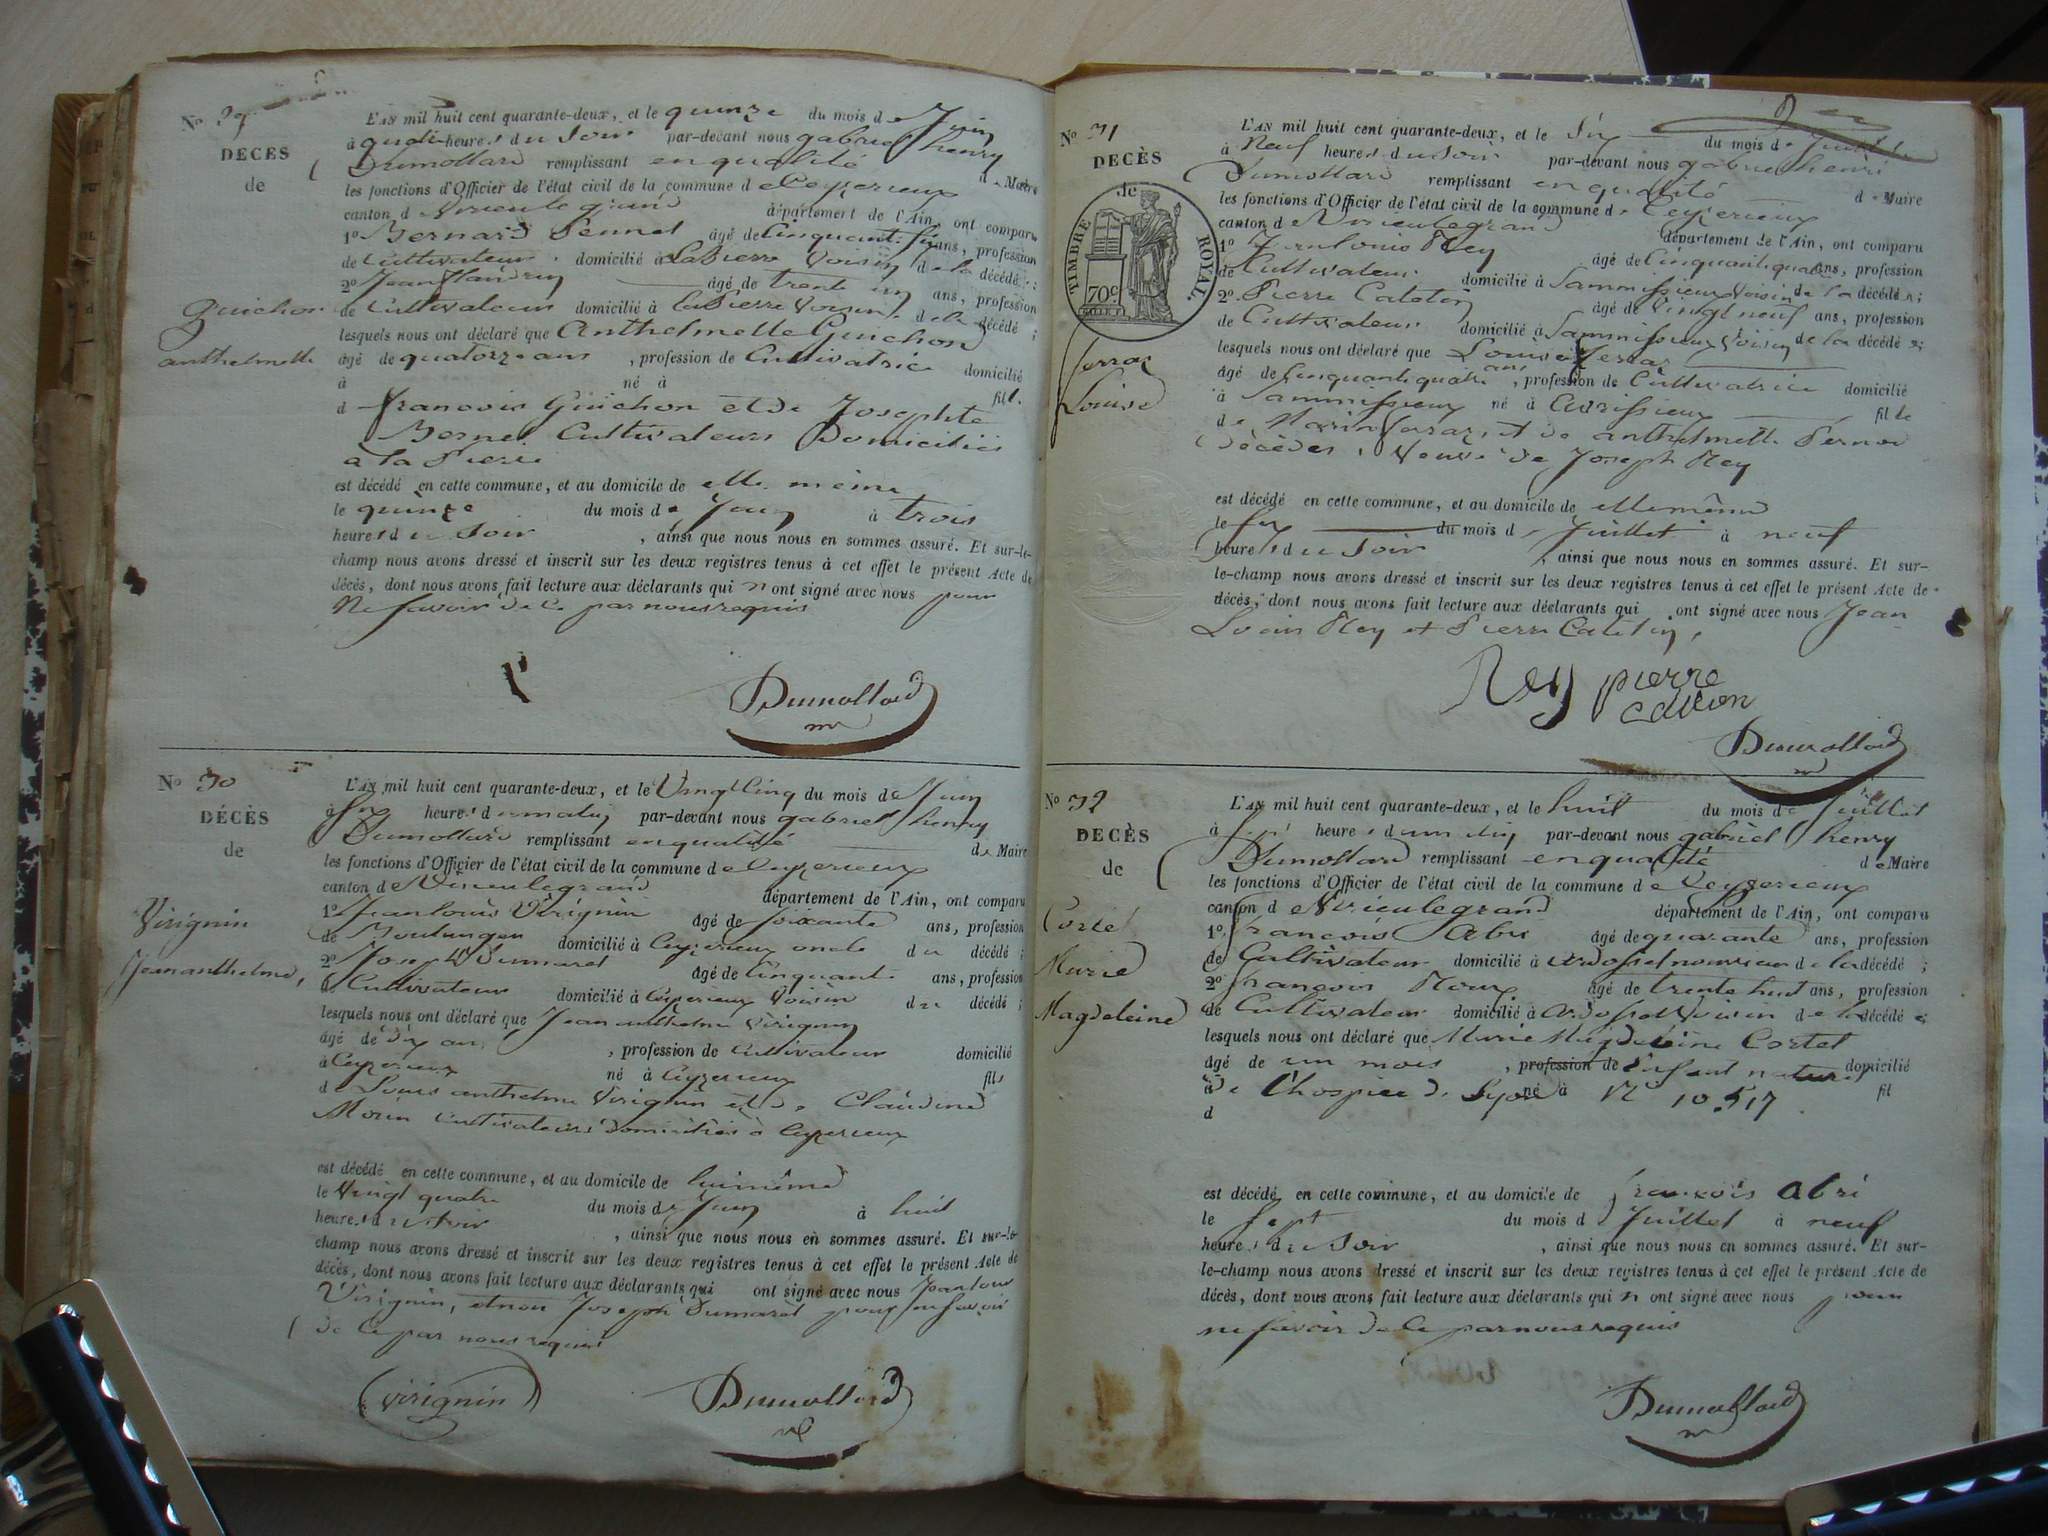 No 29
DECÈS
de
Guichon
anthelmette
L'AN mil huit cent quarante-deux, et le quinze du mois de Juin
à heures du Soir par-devant nous gabriel henry
Dumollard remplissant en qualité de Maire
les fonctions d'Officier de l'état civil de la commune de Ceyzerieux
canton de Virieu le grand département de l'Ain, ont comparu
1º Bernard Pennet âgé de Cinquante six ans, profession
de Cultivateur domicilié à La Pierre Voisin de la décédée;
2º Jean âgé de trente un ans, profession
de Cultivateur domicilié à La Pierre Voisin de la décédé;
lesquels nous ont déclaré que Anthelmette Guichon
âgé de quatorze ans, profession de Cultivatrice domicilié
à né à fille
d françois Guichon et de Josephte
Cultivateurs Domiciliés
a la Pierre
est décédé en cette commune, et au domicile de elle même
le quinze du mois de Juin à trois
heures du Soir, ainsi que nous nous en sommes assuré. Et sur-le-
champ nous avons dressé et inscrit sur les deux registres tenus à cet effet le présent Acte de
décès, dont nous avons fait lecture aux déclarants qui n ont signé avec nous pour
Ne savoir de ce par nous requis
Dumollard
No 30
DÉCÈS
de
Virignin
Jean anthelme,
L'AN mil huit cent quarante-deux, et le Vingt Cinq du mois de Juin
à Six heures du matin par-devant nous gabriel henry
Dumollard remplissant en qualité de Maire
les fonctions d'Officier de l'état civil de la commune de Ceyzerieux
canton de Virieu le grand département de l'Ain, ont comparu
1º Jean louis Virignin âgé de soixante ans, profession
de Boulanger domicilié à Ceyzerieux oncle du décédé;
2º Joseph Dumarest âgé de Cinquante ans, profession
de Cultivateur domicilié à Ceyzerieux Voisin du décédé;
lesquels nous ont déclaré que Jean anthelme Virignin
âgé de dix ans, profession de Cultivateur domicilié
à Ceyzerieux né à Ceyzerieux fils
d Louis anthelme Virignin et de Claudine
Morin Cultivateurs domiciliés à Ceyzerieux
est décédé en cette commune, et au domicile de lui même
le Vingt quatre du mois de Juin à huit
heures du Soir, ainsi que nous nous en sommes assuré. Et sur-le-
champ nous avons dressé et inscrit sur les deux registres tenus à cet effet le présent Acte de
décès, dont nous avons fait lecture aux déclarants qui ont signé avec nous Jean louis
Virignin, et non Joseph Dumarest pour ne savoir
de ce par nous requis
Virignin Dumollard
No 31
DECÈS
de
TIMBRE ROYAL.
70 c
ferraz
Louise
L'AN mil huit cent quarante-deux, et le Six du mois de Juillet
à Neuf heures du Soir par-devant nous gabriel henri
Dumollard remplissant en qualité de Maire
les fonctions d'Officier de l'état civil de la commune de Ceyzerieux
canton de Virieu le grand département de l'Ain, ont comparu
1º Jean louis Rey âgé de Cinquante quatre ans, profession
de Cultivateur domicilié à Sammissieux Voisin de la décédée;
2º Pierre Catelin âgé de Vingt neuf ans, profession
de Cultivateur domicilié à Sammissieux Voisin de la décédée;
lesquels nous ont déclaré que Louise ferraz
âgé de Cinquante quatre ans, profession de Cultivatrice domicilié
à Sammissieux né à Cuzissieux fille
de Marin ferraz, et de anthelmette
Décédés, Veuve de Joseph Rey
est décédé en cette commune, et au domicile de elle même
le six du mois de Juillet à neuf
heures du Soir, ainsi que nous nous en sommes assuré. Et sur-
le-champ nous avons dressé et inscrit sur les deux registres tenus à cet effet le présent Acte de
décès, dont nous avons fait lecture aux déclarants qui ont signé avec nous Jean
Louis Rey et Pierre Catelin,
Rey pierre
Dumollard
No 32
DECÈS
de
Cortet
Marie
Magdeleine
L'AN mil huit cent quarante-deux, et le huit du mois de Juillet
à heures du matin par-devant nous gabriel henry
Dumollard remplissant en qualité de Maire
les fonctions d'Officier de l'état civil de la commune de Ceyzerieux
canton de Virieu le grand département de l'Ain, ont comparu
1º françois Abri âgé de quarante ans, profession
de Cultivateur domicilié à Ardosset nourricier de la décédé;
2º françois Roux âgé de trente huit ans, profession
de Cultivateur domicilié à Ardosset Voisin de la décédée;
lesquels nous ont déclaré que Marie Magdeleine Cortet
âgé de un mois, profession de Enfant naturel domicilié
à De l'hospice de Lyon né à Nº 10.517 fil
d
est décédé en cette commune, et au domicile de françois Abri
le Sept du mois d Juillet à neuf
heures du Soir, ainsi que nous nous en sommes assuré. Et sur-
le-champ nous avons dressé et inscrit sur les deux registres tenus à cet effet le présent Acte de
décès, dont nous avons fait lecture aux déclarants qui n ont signé avec nous pour
ne savoir de ce par nous requis
Dumollard